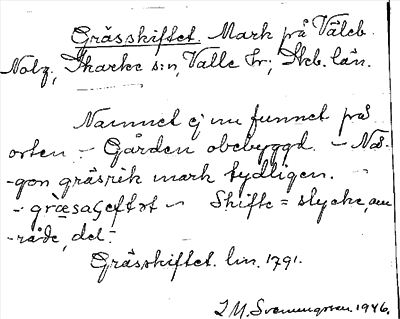 Grässkiftet. Mark på Väleb.
Nolg., Skarke s:n, Valle hr; Skb. län.
Namnet ej nu funnet på
orten. - Gården obebyggd. - Nå-
-gon gräsrik mark tydligen.
- Skifte = stycke, om
-råde, del. -
Grässkiftet. lin. 1791.
I M. Svenungsson 1946.